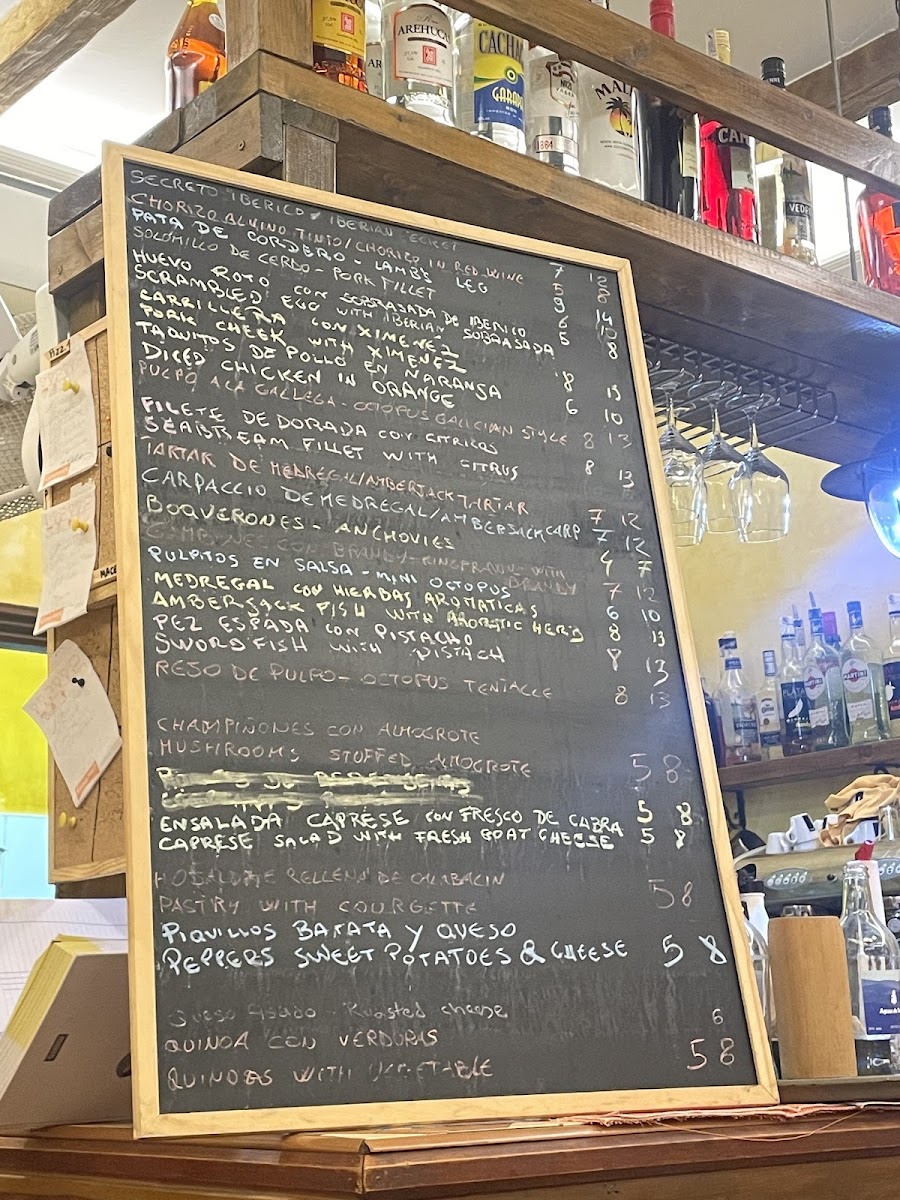 AREHUCAS
CACHAÇ
GARAPA
1864
MAL
CAM
VEDR
SECRETO IBERICO / IBERIAN SECRET 7 12
CHORIZO AL VINO TINTO / CHORIZO IN RED WINE 5 8
PATA DE CORDERO - LAMB'S LEG 9 14
SOLOMILLO DE CERDO - PORK FILLET 6 10
HUEVO ROTO CON SOBRASADA DE IBERICO 5 8
SCRAMBLED EGG WITH IBERIAN SOBRASADA
CARRILLERA CON XIMENEZ 8 13
PORK CHEEK WITH XIMENEZ
TAQUITOS DE POLLO EN NARANSA 6 10
DICED CHICKEN IN ORANGE
PULPO A LA GALLEGA - OCTOPUS GALICIAN STYLE 8 13
FILETE DE DORADA CON CITRICOS 8 13
SEABREAM FILLET WITH CITRUS
TARTAR DE MEDREGAL/AMBERJACK TARTAR 7 12
CARPACCIO DE MEDREGAL/AMBERJACK CARP 7 12
BOQUERONES - ANCHOVIES 4 7
GAMBONES CON BRANDY - KINGPRAWN WITH BRANDY 7 12
PULPITOS EN SALSA - MINI OCTOPUS 6 10
MEDREGAL CON HIERBAS AROMATICAS 8 13
AMBERJACK FISH WITH AROMATIC HERB
PEZ ESPADA CON PISTACHO 8 13
SWORDFISH WITH PISTACH
REJO DE PULPO - OCTOPUS TENTACLE 8 13
CHAMPIÑONES CON ALMOGROTE
MUSHROOMS STOFFED ALMOGROTE 5 8
ENSALADA CAPRESE CON FRESCO DE CABRA 5 8
CAPRESE SALAD WITH FRESH GOAT CHEESE 5 8
HOJALDRE RELLENA DE CALABACIN 5 8
PASTRY WITH COURGETTE
PIQUILLOS BATATA Y QUESO
PEPPERS SWEET POTATOES & CHEESE 5 8
Queso Asado - Roasted cheese 6
QUINOA CON VERDURAS
QUINOAS WITH VEGETABLE 5 8
PIZZ
MACE
MARTINI
MARTINI